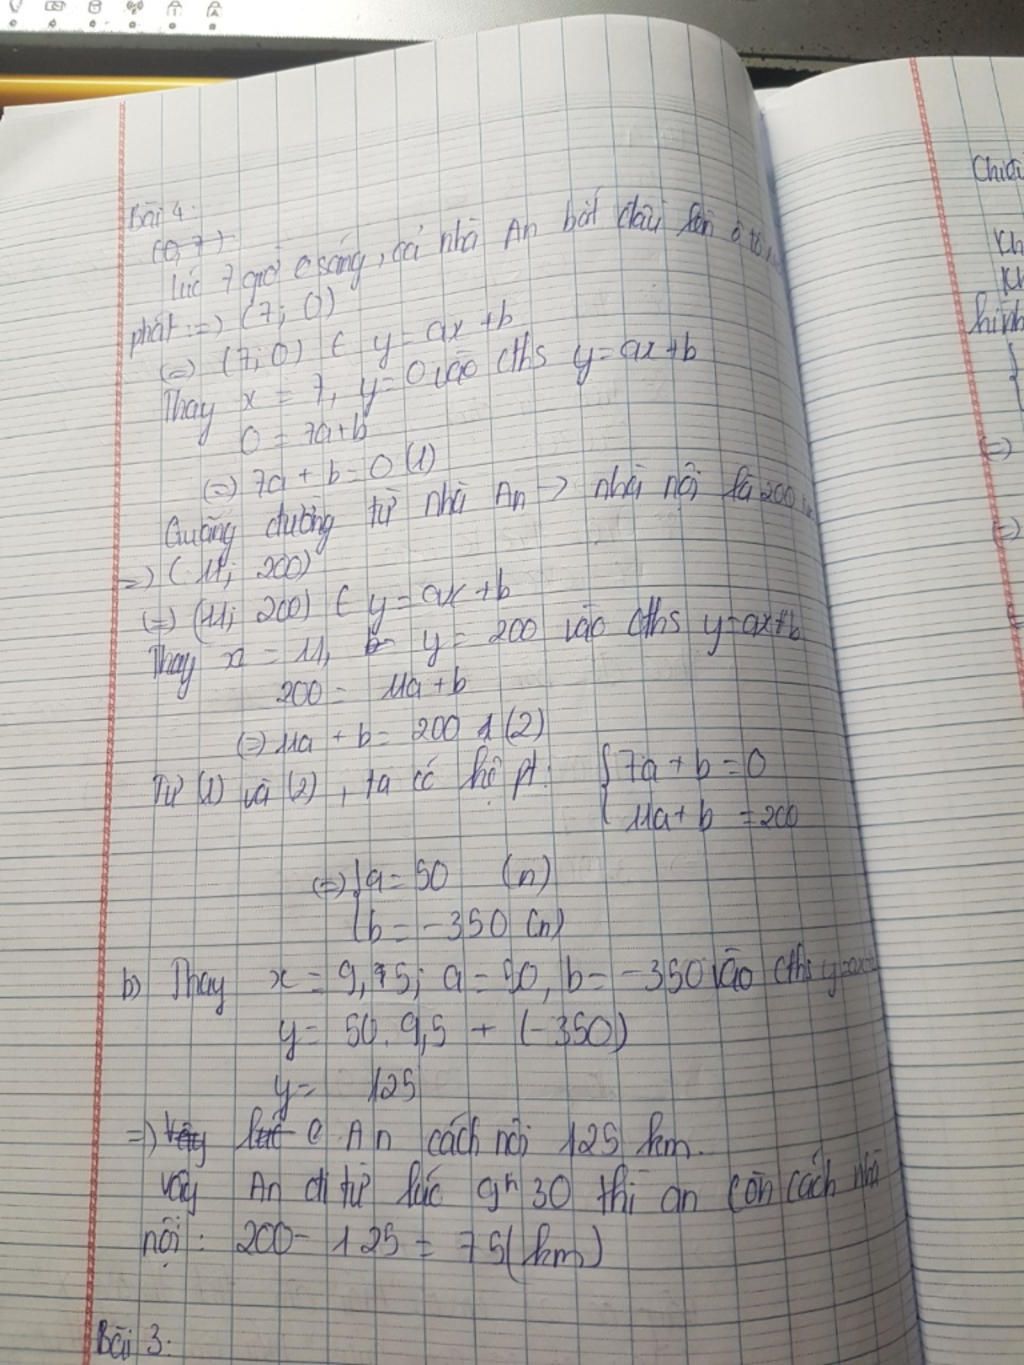 Bài 4:
(0,7)
Lúc 7 giờ sáng, cả nhà An bắt đầu lên ô tô
phát =) (7; 0)
(=) (7; 0) ∈ y = ax + b
Thay x = 7, y = 0 vào cths y = ax + b
0 = 7a + b
(=) 7a + b = 0 (1)
Quãng đường từ nhà An -> nhà nội là 200
=) (11; 200)
(=) (11; 200) ∈ y = ax + b
Thay x = 11, y = 200 vào cths y = ax + b
200 = 11a + b
(=) 11a + b = 200 (2)
Từ (1) và (2), ta có hệ pt: { 7a + b = 0
11a + b = 200
(=) { a = 50 (n)
b = -350 (n)
b) Thay x = 9,5; a = 50, b = -350 vào cths y = ax
y = 50.9,5 + (-350)
y = 125
=) An cách nội 125 km.
Vậy An đi từ lúc 9h30 thì an còn cách nhà
nội: 200 - 125 = 75 (km)
Bài 3:
Chiều
Kh
Kh
hình
{
(=)
(=)